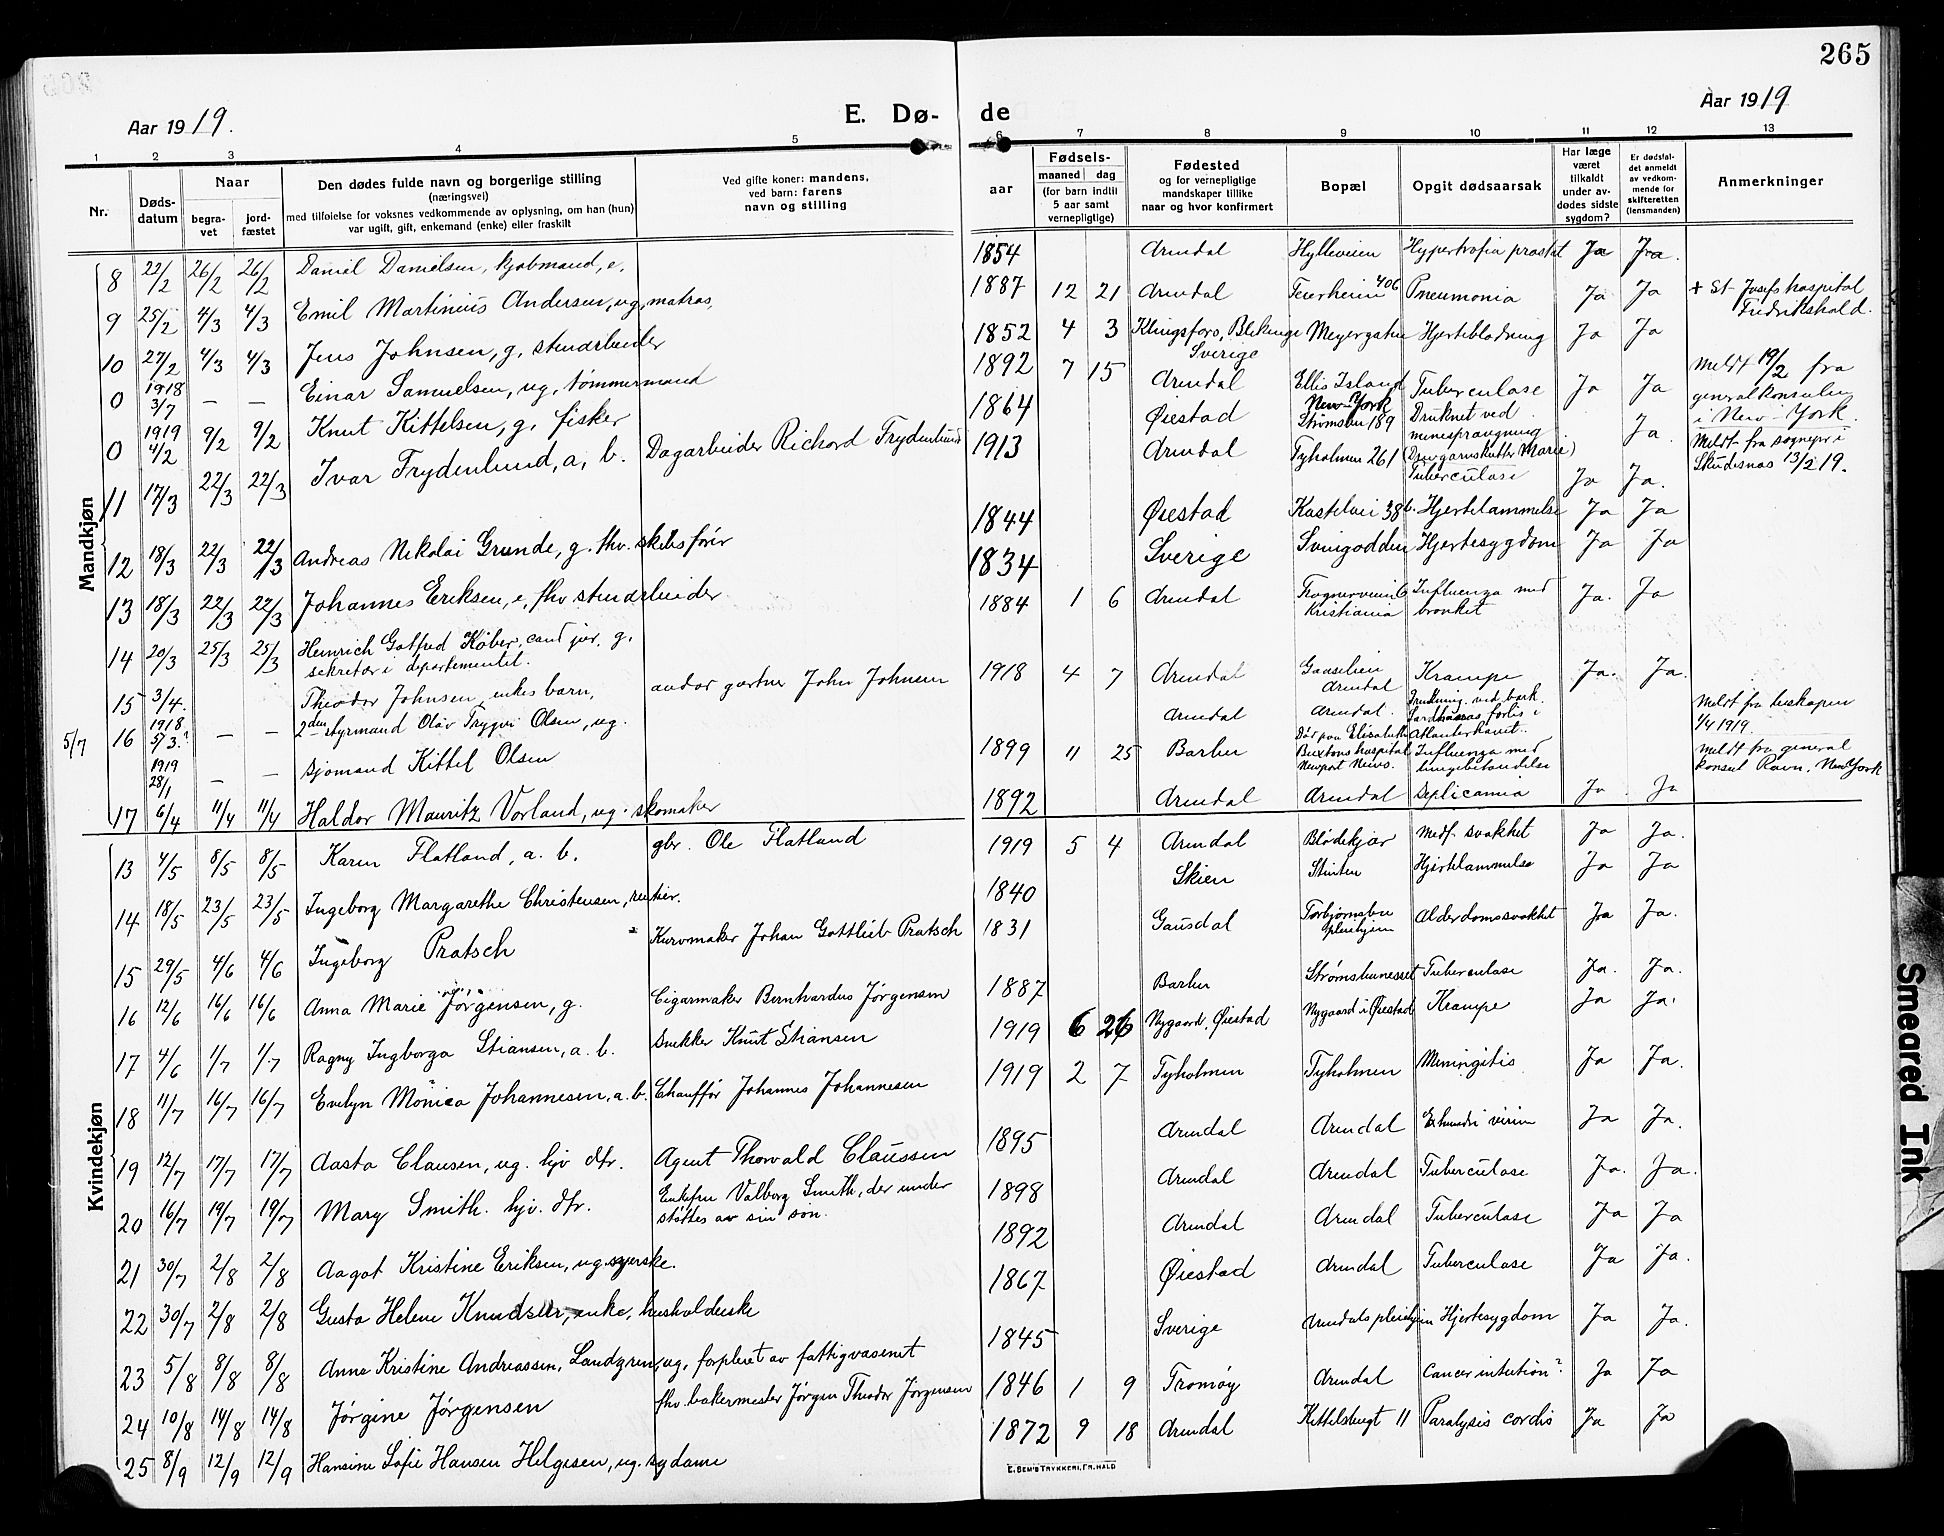 265
Aar 1919.
E. Dø-
de
Aar 1919
1 2 3 4 5 6 7 8 9 10 11 12 13
Nr.
Døds-
datum
Naar
begra-
vet
jord-
fæstet
Den dødes fulde navn og borgerlige stilling
(næringsvei)
med tilføielse for voksnes vedkommende av oplysning, om han (hun)
var ugift, gift, enkemand (enke) eller fraskilt
Ved gifte koner: mandens,
ved barn: farens
navn og stilling
aar
Fødsels-
maaned dag
(for barn indtil
5 aar samt
vernepligtige)
Fødested
og for vernepligtige
mandskaper tillike
naar og hvor konfirmert
Bopæl
Opgit dødsaarsak
Har læge
været
tilkaldt
under av-
dødes sidste
sygdom?
Er dødsfal-
det anmeldt
av vedkom-
mende for
skifteretten
(lensmanden)
Anmerkninger
Mandkjøn
8 22/2 26/2 26/2 Daniel Danielsen, kjøbmand, e. 1854 Arendal Hylleveien Hypertrofia prostat Ja Ja.
9 25/2 4/3 4/3 Emil Martinius Andersen, ug, matros, 1887 12 21 Arendal 406 Pneumonia Ja Ja + St Josefs hospital
Fredrikshald.
10 27/2 4/3 4/3 Jens Johnsen, g, stenarbeider 1852 4 3 Klingsfors, Blekinge Meyergaten Hjerteblødning Ja Ja
Sverige
0 1918 3/7 — — Einar Samuelsen, ug, tømmermand 1892 7 15 Arendal Ellis Island Tuberculose Ja Ja Meldt 19/2 fra
New-York generalkonsulen
i New-York.
0 1919 4/2 9/2 9/2 Knut Kittelsen, g, fisker 1864 Øiestad Strømsbu 189 Druknet ved
minesprængning Ja. Meldt fra sognepr i
(Drivgarnskutter Marie) Skudesnas 13/2 19.
11 17/3 22/3 22/3 Ivar Frydenlund, a, b. Dagarbeider Richard Frydenlund 1913 Arendal Tyholmen 261 Tuberculose Ja Ja.
12 18/3 22/3 22/3 Andreas Nikolai Grunde, g. fhv. skibsfører 1844 Øiestad Kastelvei 38b. Hjertelammelse Ja Ja
13 18/3 22/3 22/3 Johannes Eriksen, e, fhv stenarbeider 1834 Sverige Svingodden Hjertesygdom Ja Ja
14 20/3 25/3 25/3 Heinrich Gotfred Køber, cand jur. g. 1884 1 6 Arendal Influenza med Ja. Ja
sekretær i departementet. Kristiania bronket
15 3/4. Theodor Johnsen, enkes barn, andor gartner John Johnsen 1918 4 7 Arendal Arendal Krampe Ja. Ja.
5/7 16 1918 5/3? — — 2den styrmand Olav Trygve Olsen, ug. Arendal Arendal. Drukning. ved bark. Meldt fra biskopen
forlis i 1/4 1919.
Atlanterhavet.
1919 28/1 — — sjømand Kittel Olsen 1899 11 25 Barbu Død paa Elisabeth Influenza med Meldt fra general
Buxtons hospital lungebetændelse konsul Ravn, New York
Newport News.
17 6/4 11/4 11/4 Haldor Mauritz Vorland, ug. skomaker 1892 Arendal Arendal Ja Ja
Kvindekjøn
13 4/5 8/5 8/5 Karen Flatland, a. b. gbr. Ole Flatland 1919 5 4 Arendal Blødekjær Medf. svakhet Ja Ja.
14 18/5 23/5 23/5 Ingeborg Margarethe Christensen, rentier. 1840 Skien Stinten Hjertelammelse Ja Ja
15 29/5 4/6 4/6 Ingeborg Pratsch Kurvmaker Johan Gottlieb Pratsch 1831 Gausdal Torbjørnsbu Alderdomssvakhet Ja Ja.
pleiehjem
16 12/6 16/6 16/6 Anna Marie Jørgensen, g. Cigarmaker Bernhardus Jørgensen 1887 Barbu Strømsbunesset Tuberculose Ja. Ja.
17 4/6 1/7 1/7 Ragny Ingborga Stiansen, a. b. Snekker Knut Stiansen 1919 6 26 Nygaard, Øiestad Nygaard i Øiestad Krampe Ja Ja.
18 11/7 16/7 16/7 Evelyn Monica Johannesen, a. b. Chauffør Johannes Johannesen 1919 2 7 Tyholmen Tyholmen Meningitis Ja Ja.
19 12/7 17/7 17/7 Aasta Clausen, ug. hjv dtr. Agent Thorvald Claussen 1895 Arendal Arendal Ja Ja.
20 16/7 19/7 19/7 Mary Smith. hjv. dtr. Enkefru Valborg Smith, der under 1898 Arendal Arendal Tuberculose Ja. Ja.
støttes av sin søn.
21 30/7 2/8 2/8 Aagot Kristine Eriksen, ug. syerske. 1892 Arendal Arendal Tuberculose Ja Ja
22 30/7 2/8 2/8 Gusta Helene Knudsen, enke, husholderske 1867 Øiestad Arendal Tuberculose Ja Ja.
23 5/8 8/8 8/8 Anna Kristine Andreassen, Landgren, ug, forpleiet av fattigvæsenet 1845 Sverige Arendals pleiehjem Hjertesygdom Ja Ja.
24 10/8 14/8 14/8 Jørgine Jørgensen fhv. bakermester Jørgen Theodor Jørgensen 1846 1 9 Tromøy Arendal Cancer intestion? Ja Ja
25 8/9 12/9 12/9 Hansine Sofie Hansen Helgesen, ug. sydame 1872 9 18 Arendal Kittelsbugt 11 Paralysis cordis Ja Ja
E. SEM'S TRYKKERI, FR.HALD
Smeared Ink